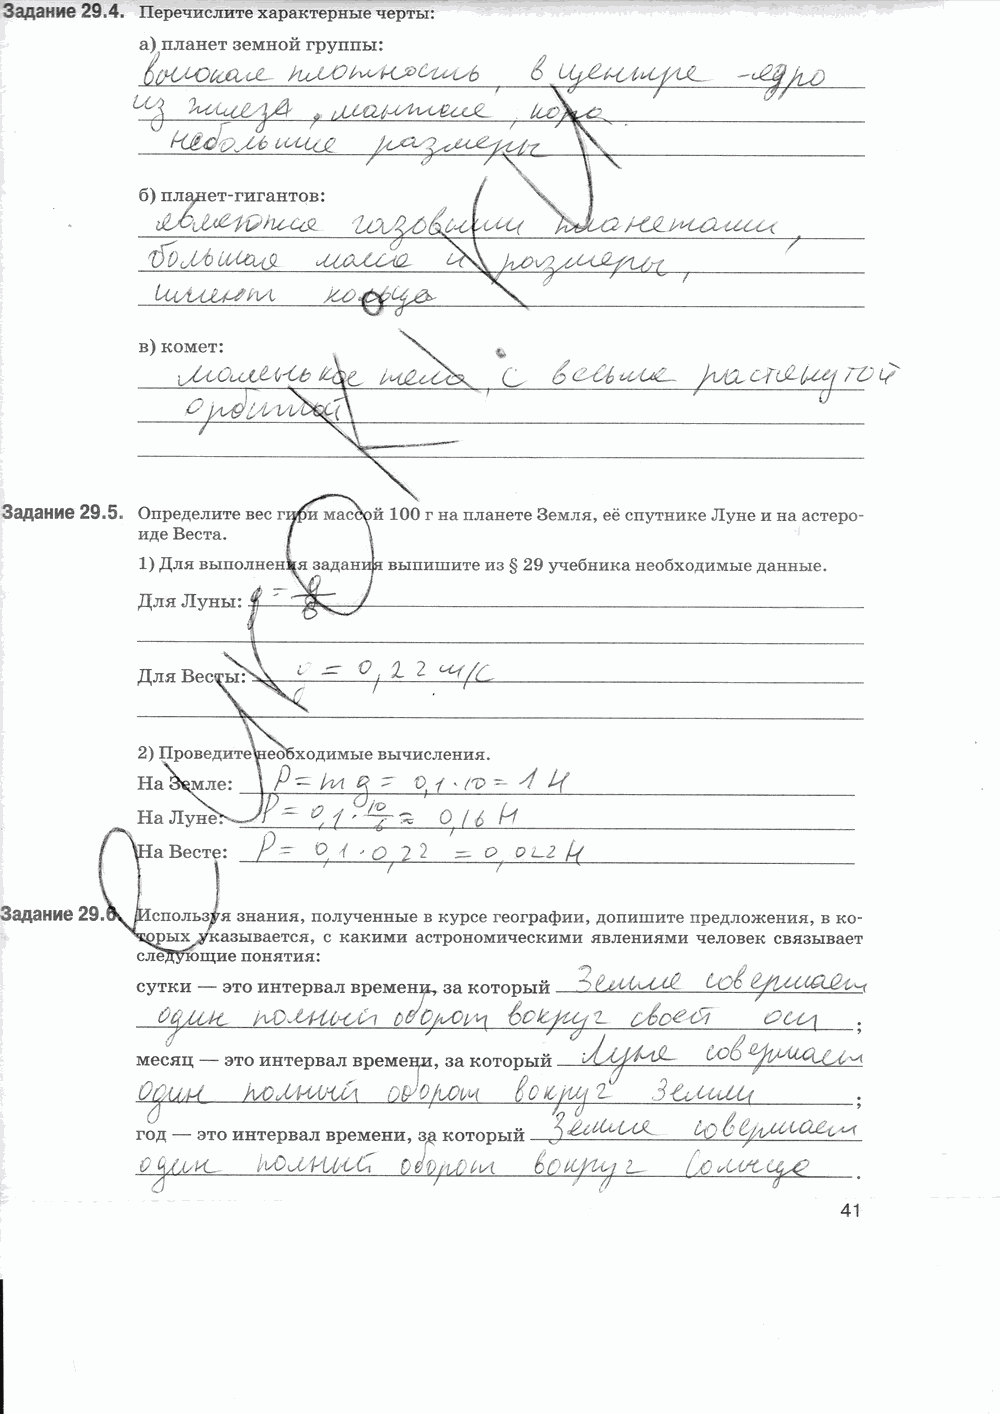 Задание 29.4. Перечислите характерные черты:
а) планет земной группы:
высокая плотность, в центре - ядро
из железа, мантия, кора
небольшие размеры
б) планет-гигантов:
являются газовыми планетами,
большая масса и размеры,
имеют кольца
в) комет:
маленькое тело, с весьма растянутой
орбитой
Задание 29.5. Определите вес гири массой 100 г на планете Земля, её спутнике Луне и на астеро-
иде Веста.
1) Для выполнения задания выпишите из § 29 учебника необходимые данные.
Для Луны: g = g/6
Для Весты: g = 0,22 м/с
2) Проведите необходимые вычисления.
На Земле: P = mg = 0,1 · 10 = 1 Н
На Луне: P = 0,1 · 10/6 ≈ 0,16 Н
На Весте: P = 0,1 · 0,22 = 0,022 Н
Задание 29.6. Используя знания, полученные в курсе географии, допишите предложения, в ко-
торых указывается, с какими астрономическими явлениями человек связывает
следующие понятия:
сутки — это интервал времени, за который Земля совершает
один полный оборот вокруг своей оси ;
месяц — это интервал времени, за который Луна совершает
один полный оборот вокруг Земли ;
год — это интервал времени, за который Земля совершает
один полный оборот вокруг Солнца .
41